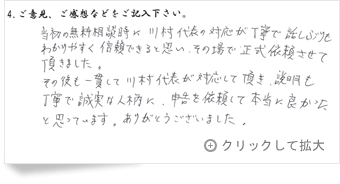 4.ご意見、ご感想などをご記入下さい。
当初の無料相談時に川村代表の対応が丁寧で話しぶりも
わかりやすく信頼できると思い、その場で正式依頼させて
頂きました。
その後も一貫して川村代表が対応して頂き、説明も
丁寧で誠実な人柄に、申告を依頼して本当に良かった
と思っています。ありがとうございました。
クリックして拡大